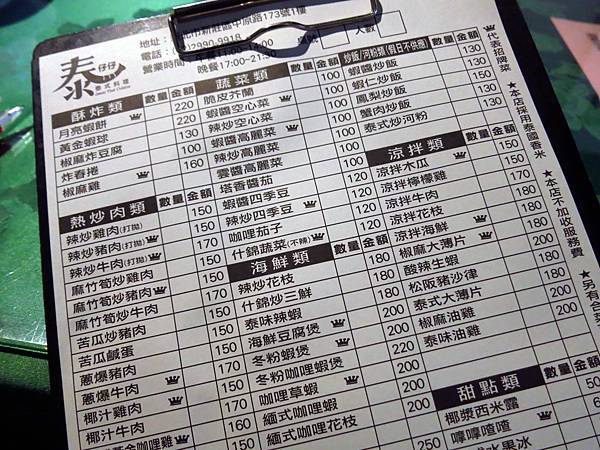 泰
仔仔
泰式料理
地址：
北市新莊區中原路173號1樓
電話：
2990-9918
營業時間
11:00-14:00
晚餐17:00-21:
桌號
人數
酥炸類 數量 金額
月亮蝦餅 220
黃金蝦球 220
椒麻炸豆腐 130
炸春捲 100
椒麻雞 160
熱炒肉類 數量 金額
辣炒雞肉(打拋) 150
辣炒豬肉(打拋) 150
辣炒牛肉(打拋) 170
麻竹筍炒雞肉 150
麻竹筍炒豬肉 150
麻竹筍炒牛肉 170
苦瓜炒豬肉 150
苦瓜鹹蛋 150
蔥爆豬肉 150
蔥爆牛肉 170
椰汁雞肉 150
椰汁牛肉 170
黃金咖哩雞 150
蔬菜類 數量 金額
脆皮芥蘭 100
蝦醬空心菜 100
辣炒空心菜 100
蝦醬高麗菜 100
辣炒高麗菜 100
雲醬高麗菜 100
塔香醬茄
蝦醬四季豆
辣炒四季豆
咖哩茄子
什錦蔬菜(不辣)
海鮮類 數量 金額
辣炒花枝 180
什錦炒三鮮 180
泰味辣蝦 200
海鮮豆腐煲 200
冬粉蝦煲 220
冬粉咖哩蝦煲
咖哩草蝦
緬式咖哩蝦
緬式咖哩花枝
炒飯/河粉類(假日不供應) 數量 金額
蝦醬炒飯 130
蝦仁炒飯
鳳梨炒飯 130
蟹肉炒飯
泰式炒河粉
涼拌類 數量 金額
涼拌木瓜 150
涼拌檸檬雞
涼拌牛肉 180
涼拌花枝 180
涼拌海鮮 180
椒麻大薄片
酸辣生蝦
松阪豬沙律
泰式大薄片
椒麻油雞 200
泰味油雞 200
甜點類 數量 金額
椰漿西米露
嚤嚤喳喳
水果冰
代表招牌菜
★本店採用泰國香米
★本店不加收服務費
★另有合菜